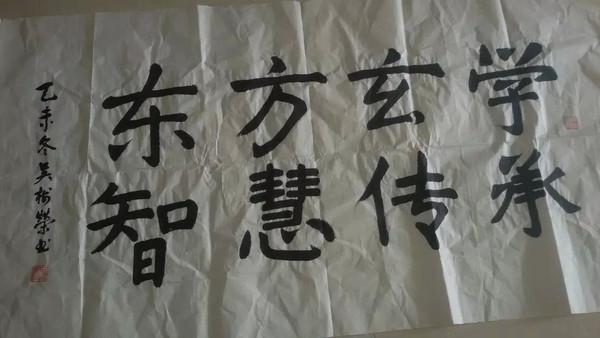 东方玄学
智慧传承
乙未冬吴榮书